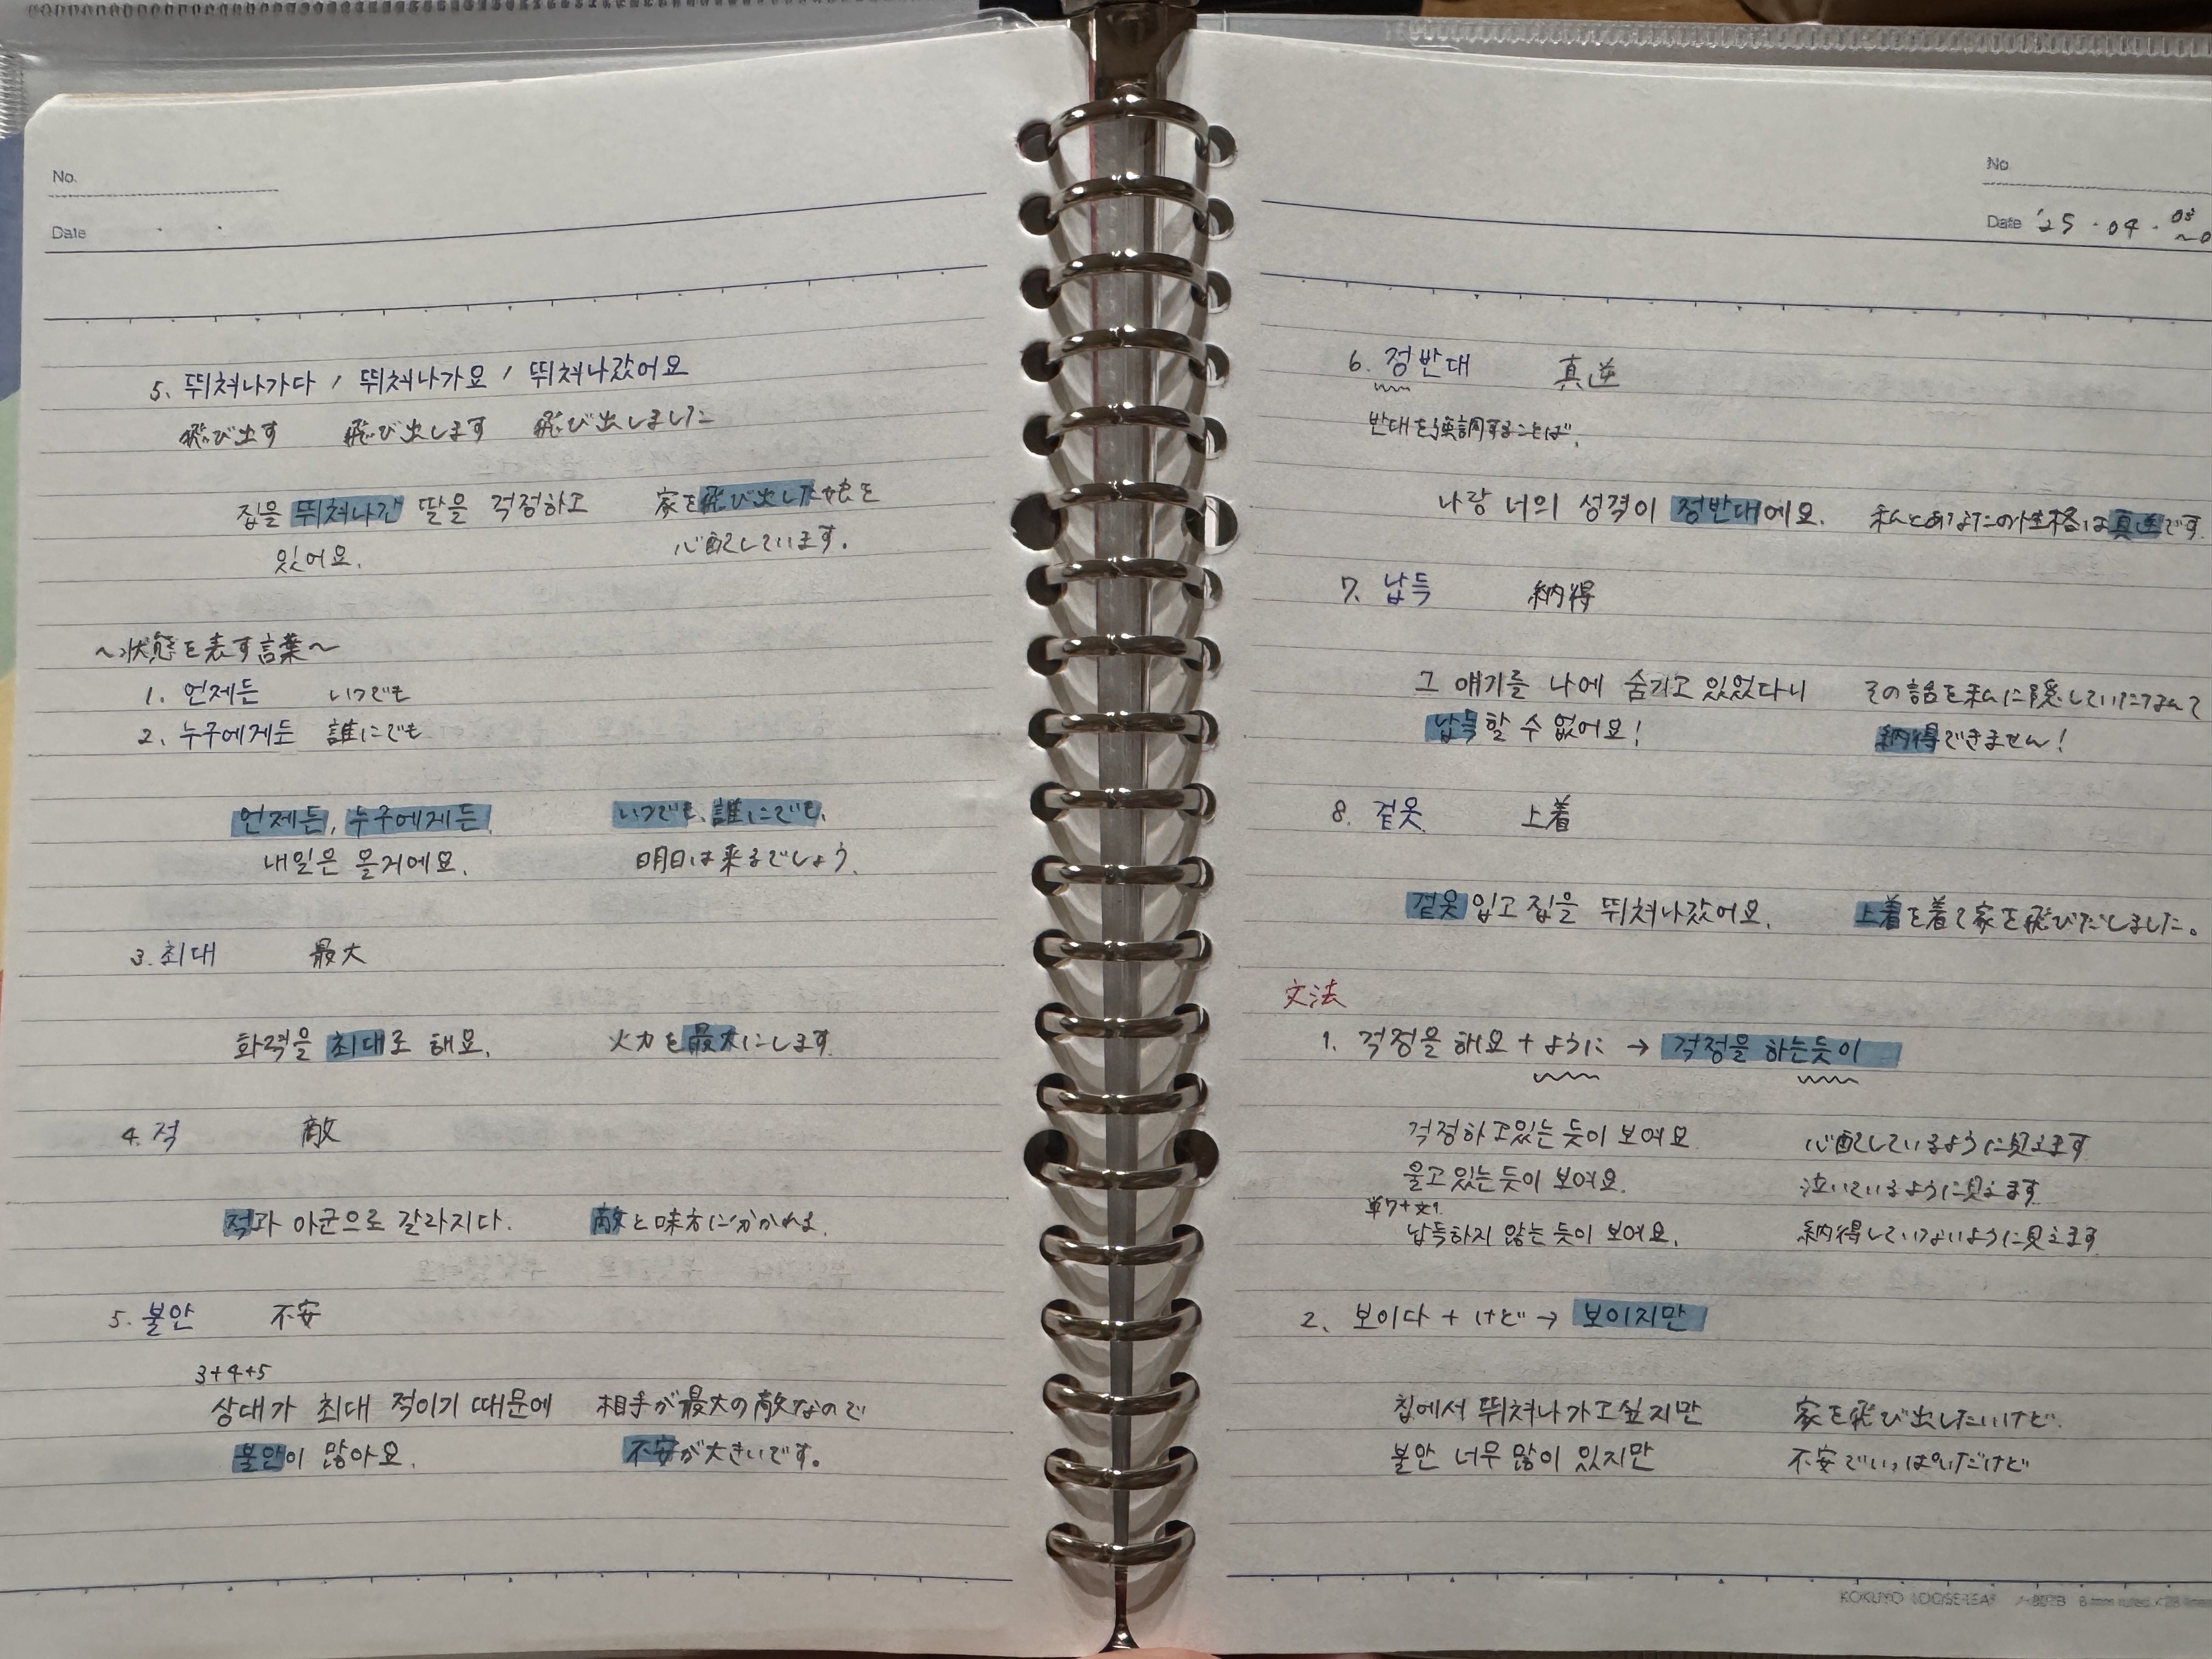 No.
Date
5. 뛰쳐나가다 / 뛰쳐나가요 / 뛰쳐나갔어요
飛び出す 飛び出します 飛び出しました
집을 뛰쳐나간 딸을 걱정하고 家を飛び出した娘を
있어요. 心配しています。
〜状態を表す言葉〜
1. 언제든 いつでも
2. 누구에게든 誰にでも
언제든, 누구에게든, いつでも、誰にでも、
내일은 올거에요. 明日は来るでしょう。
3. 최대 最大
화력을 최대로 해요. 火力を最大にします
4. 적 敵
적과 아군으로 갈라지다. 敵と味方に分かれる
5. 불안 不安
3+4+5
상대가 최대 적이기 때문에 相手が最大の敵なので
불안이 많아요. 不安が大きいです。
No
Date '25・04・
6. 정반대 真逆
반대を強調することば。
나랑 너의 성격이 정반대에요. 私とあなたの性格は真逆です
7. 납득 納得
그 얘기를 나에 숨기고 있었다니 その話を私に隠していたなんて
납득할 수 없어요! 納得できません!
8. 겉옷 上着
겉옷 입고 집을 뛰쳐나갔어요. 上着を着て家を飛びだしました。
文法
1. 걱정을 해요 + ように → 걱정을 하는듯이
걱정하고있는 듯이 보여요 心配しているように見えます
울고있는 듯이 보여요. 泣いているように見えます
単7+文1
납득하지 않는 듯이 보여요. 納得していないように見えます
2. 보이다 + けど → 보이지만
집에서 뛰쳐나가고싶지만 家を飛び出したいけど
불안 너무 많이 있지만 不安でいっぱいだけど
KOKUYO LOOSE-LEAF